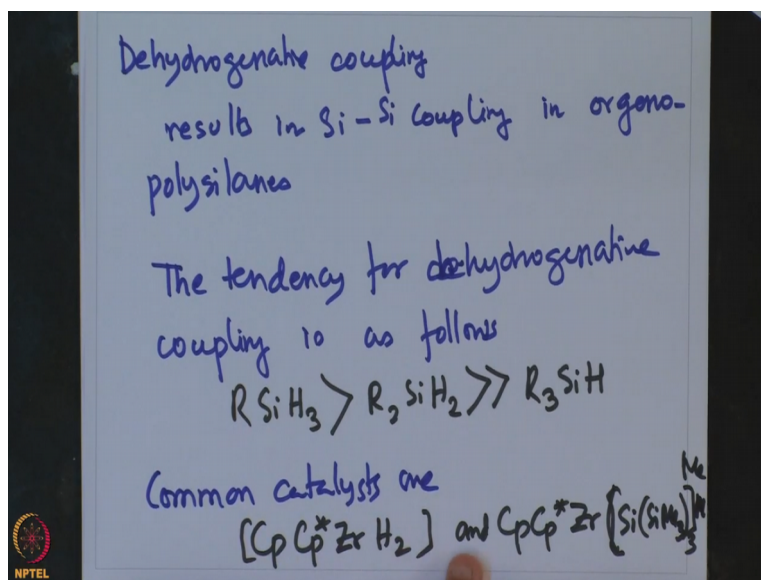 Dehydrogenative coupling
results in Si-Si coupling in organo-
polysilanes
The tendency for dehydrogenative
coupling is as follows
RSiH₃ > R₂SiH₂ >> R₃SiH
Common catalysts are
[CpCp*ZrH₂] and CpCp*Zr[Si(SiMe₃)₃]Me
NPTEL